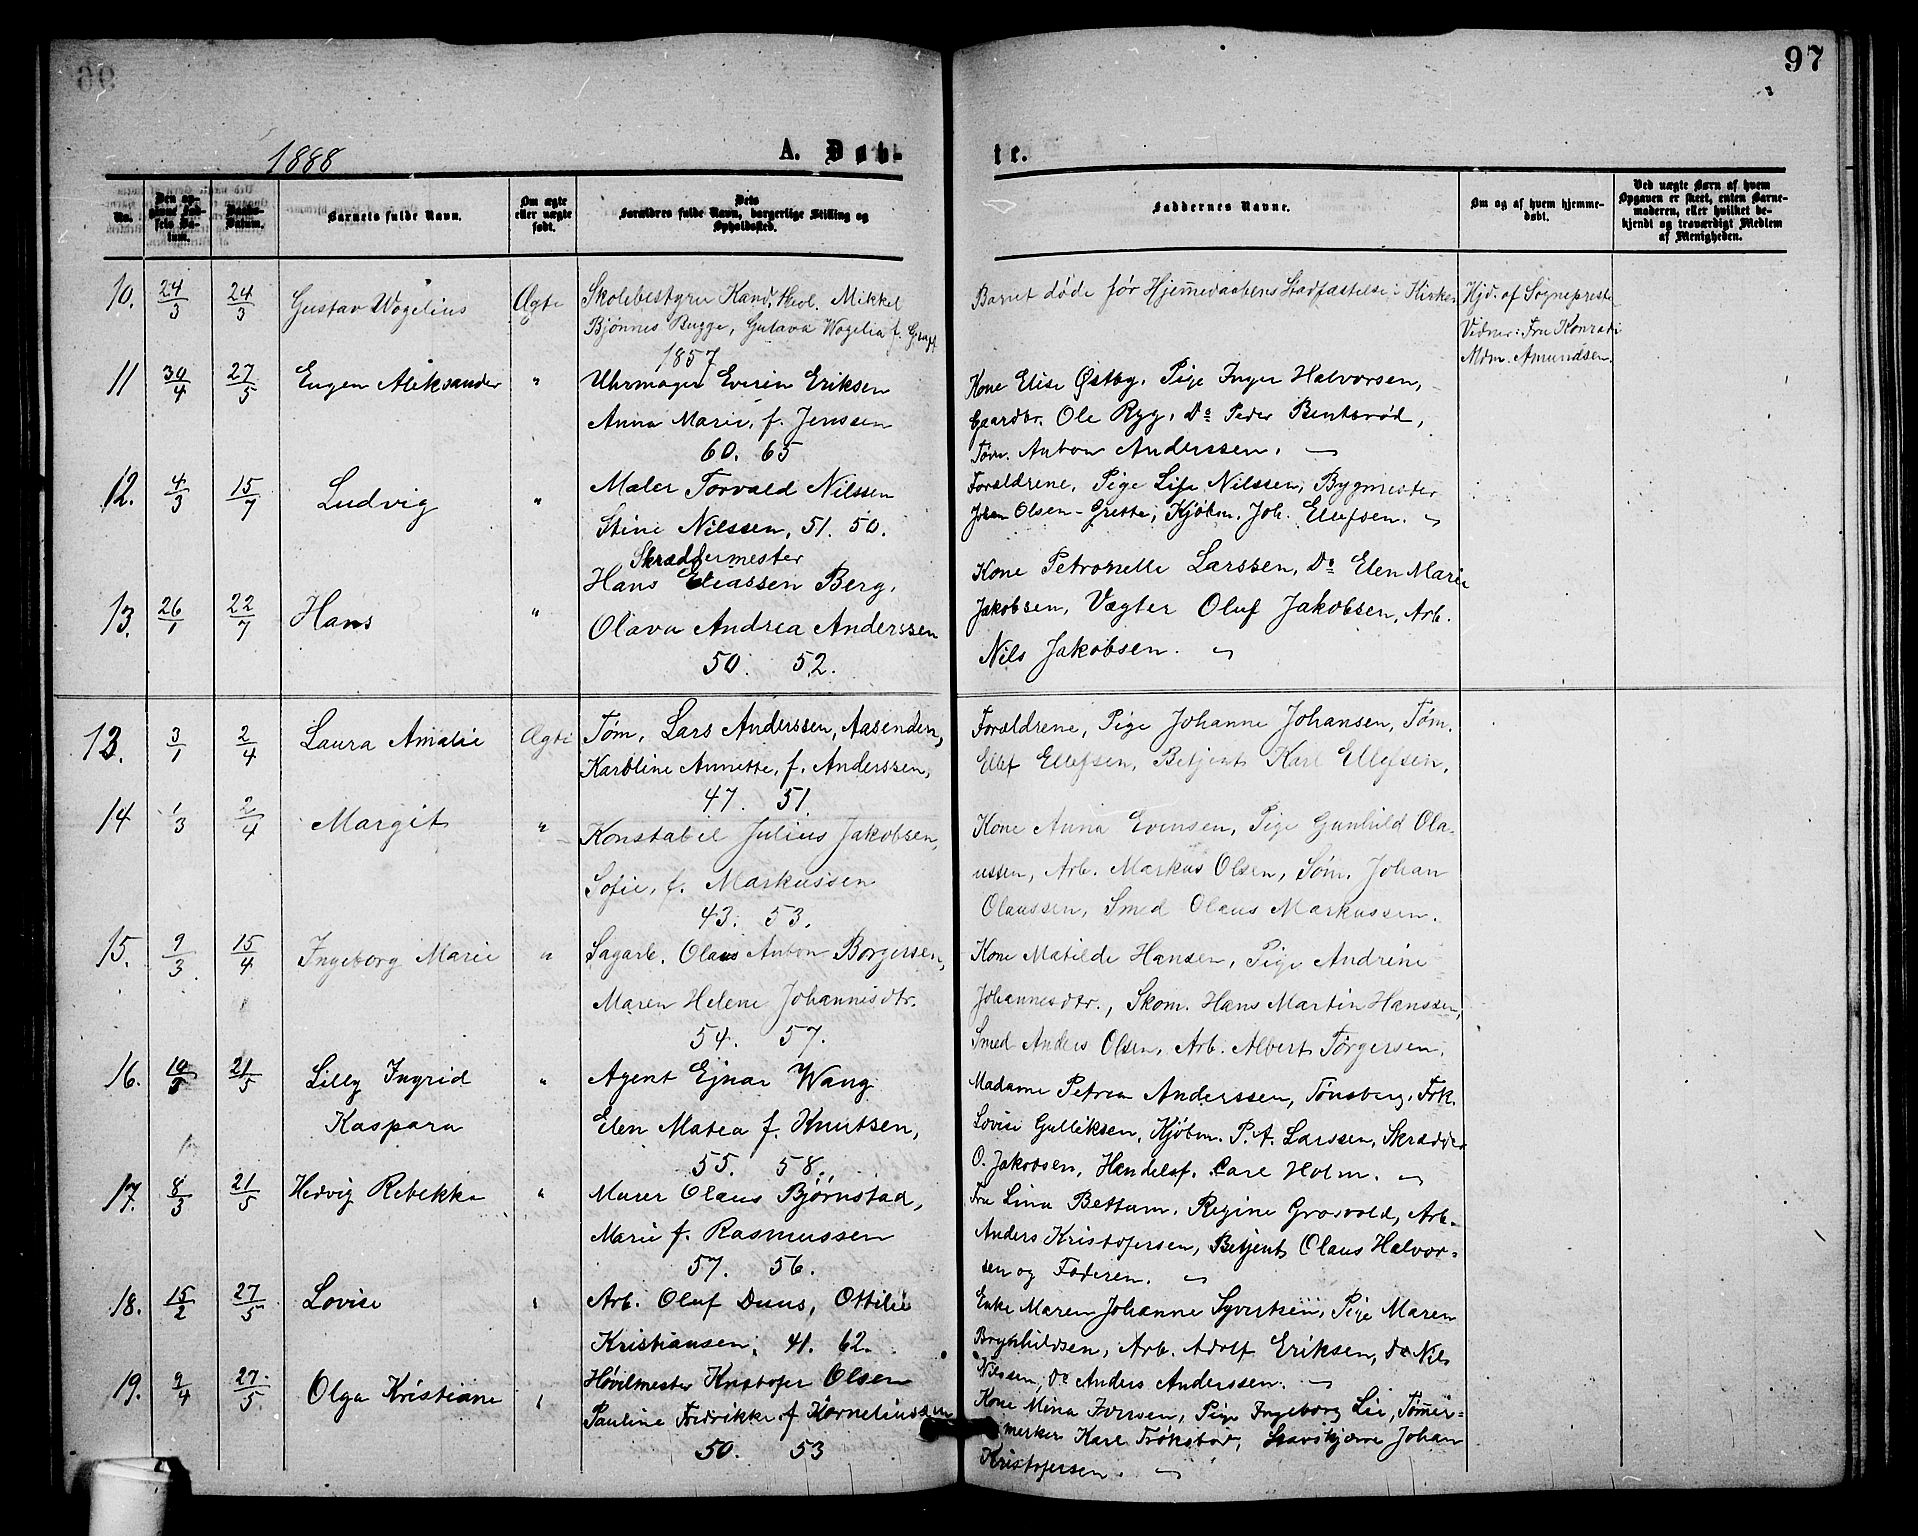 96
97
1888
A. Døb-
te.
No.
Den opgivne Fødsels Datum.
Daabs-Datum.
Barnets fulde Navn.
Om ægte eller uægte født.
Dets Forældres fulde Navn, borgerlige Stilling og Opholdssted.
Faddernes Navne.
Om og af hvem hjemmedøbt.
Ved uægte Børn af hvem Opgaven er skeet, enten Barnemoderen, eller hvilket bekjendt og troværdigt Medlem af Menigheden.
10. 24/3 24/3 Gustav Wogelius Ægte Skolebestyrer Kand. theol. Mikkel
Bjønnes Bugge, Gutava Wogelia f.
1857
Barnet døde før Hjemmedaabens Stadfæstelse i Kirken
Hjd. af Sogneprest
Vidner: Fru Konradi
Mdm. Amundsen.
11 30/4 27/5 Eugen Aleksander " Uhrmager Everin Eriksen
Anna Marie, f. Jenssen
60. 65
Kone Elise Østby, Pige Inger Halvorsen,
Gaardbr. Ole Ryg, Do Peder Bentsrød,
Tøm. Anton Anderssen.
12. 4/3 15/7 Ludvig " Maler Torvald Nilssen
Stine Nilssen, 51. 50.
Forældrene, Pige Lise Nilssen, Bygmester
Johan Olsen-Grette, Kjøbm. Joh. Ellefsen.
13. 26/1 22/7 Hans " Skræddermester
Hans Eliassen Berg,
Olava Andrea Anderssen
50. 52.
Kone Petronelle Larssen, Do Elen Marie
Jakobsen, Vægter Oluf Jakobsen, Arb.
Nils Jakobsen.
13. 3/1 2/4 Laura Amalie Ægte Tøm. Lars Anderssen, Aasenden,
Karoline Annette, f. Anderssen,
47. 51
Forældrene, Pige Johanne Johansen, Tøm.
Ellef Ellefsen, Betjent Karl Ellefsen.
14 1/3 2/4 Margit " Konstabel Julius Jakobsen,
Sofie, f. Markussen
43. 53.
Kone Anna Evensen, Pige Gunhild Ola-
ussen, Arb. Markus Olsen, Søm. Johan
Olaussen, Smed Olaus Markussen.
15. 9/3 15/4 Ingeborg Marie " Sagarb. Olaus Anton Borgersen,
Maren Helene Johannisdtr.
54. 57.
Kone Matilde Hansen, Pige Andrine
Johannesdtr., Skom. Hans Martin Hanssen,
Smed Anders Olsen, Arb. Albert Torgersen.
16. 21/5 Lilly Ingrid " Agent Ejnar Wang
Kaspara Elen Matea f. Knutsen,
55. 58.
Madame Petrea Anderssen, Tønsberg, Frk.
Lovise Gulliksen, Kjøbm. P. A. Larssen, Skrædder
O. Jakobsen, Handelsf. Carl Holm.
17. 8/3 21/5 Hedvig Rebekka " Murer Olaus Bjørnstad,
Marie f. Rasmussen
57. 56.
Fru Lina Bettum, Regine Grosvold, Arb.
Anders Kristofersen, Betjent Olaus Halvor-
sen og Faderen.
18. 15/2 27/5 Lovise " Arb. Oluf Duus, Ottilie
Kristiansen, 41. 62.
Enke Maren Johanne Syvertsen, Pige Maren
Brynhildsen, Arb. Adolf Eriksen, Do Nils
Nilssen, Do Anders Anderssen.
19. 9/4 27/5 Olga Kristiane " Høvilmester Kristofer Olsen
Pauline Fredrikke f. Korneliussen
50. 53
Kone Mina Iversen, Pige Ingeborg Lie, Tømer-
merker Karl Trøkstad, Johan
Kristofersen.